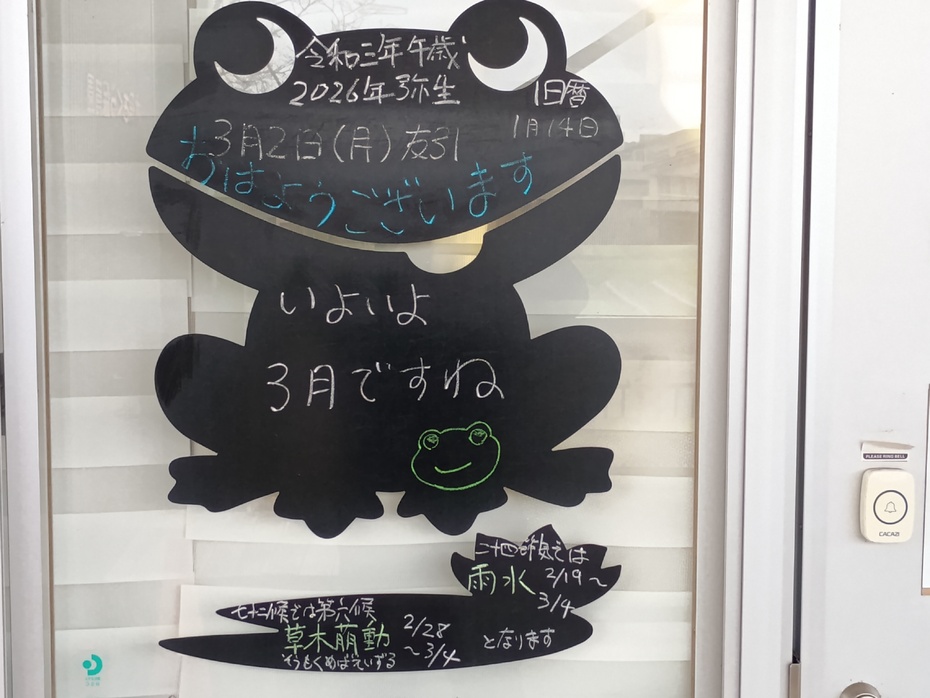 令和三年午歳
2026年弥生
旧暦
1月14日
3月2日(月)友引
おはようございます
いよいよ
3月ですね
PLEASE RING BELL
CACAZI
二十四節気では
雨水 2/19～
3/4
七十二候では第六候
草木萠動
2/28
～3/4
そうもくめばえいずる
となります